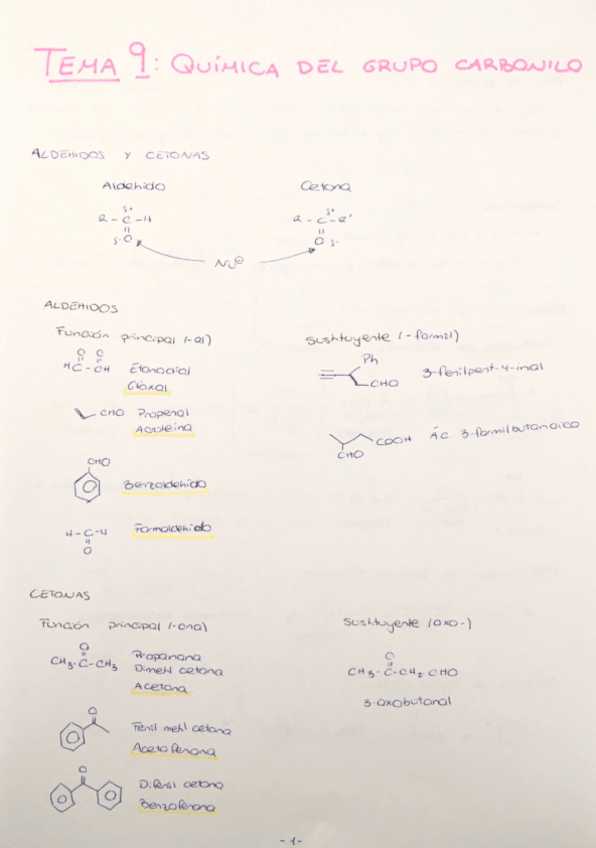 TEMA 9: QUÍMICA DEL GRUPO CARBONILO
ALDEHIDOS Y CETONAS
Aldehido Cetona
δ+ δ+
R - C - H R - C - R'
δ- O O δ-
Nu⊖
ALDEHIDOS
Función principal (-al) Sustituyente (-formil)
O O Ph
HC - CH Etanodial CHO 3-fenilpent-4-inal
Glioxal
CHO Propenal
Acroleina COOH Ác. 3-formilbutanoico
CHO
CHO
Benzaldehido
H - C - H Formaldehido
O
CETONAS
Función principal (-ona) Sustituyente (oxo-)
O Propanona O
CH3 - C - CH3 Dimetil cetona CH3 - C - CH2 CHO
Acetona
3-oxobutanal
O
Fenil metil cetona
Acetofenona
O
Difenil cetona
Benzofenona
- 1 -